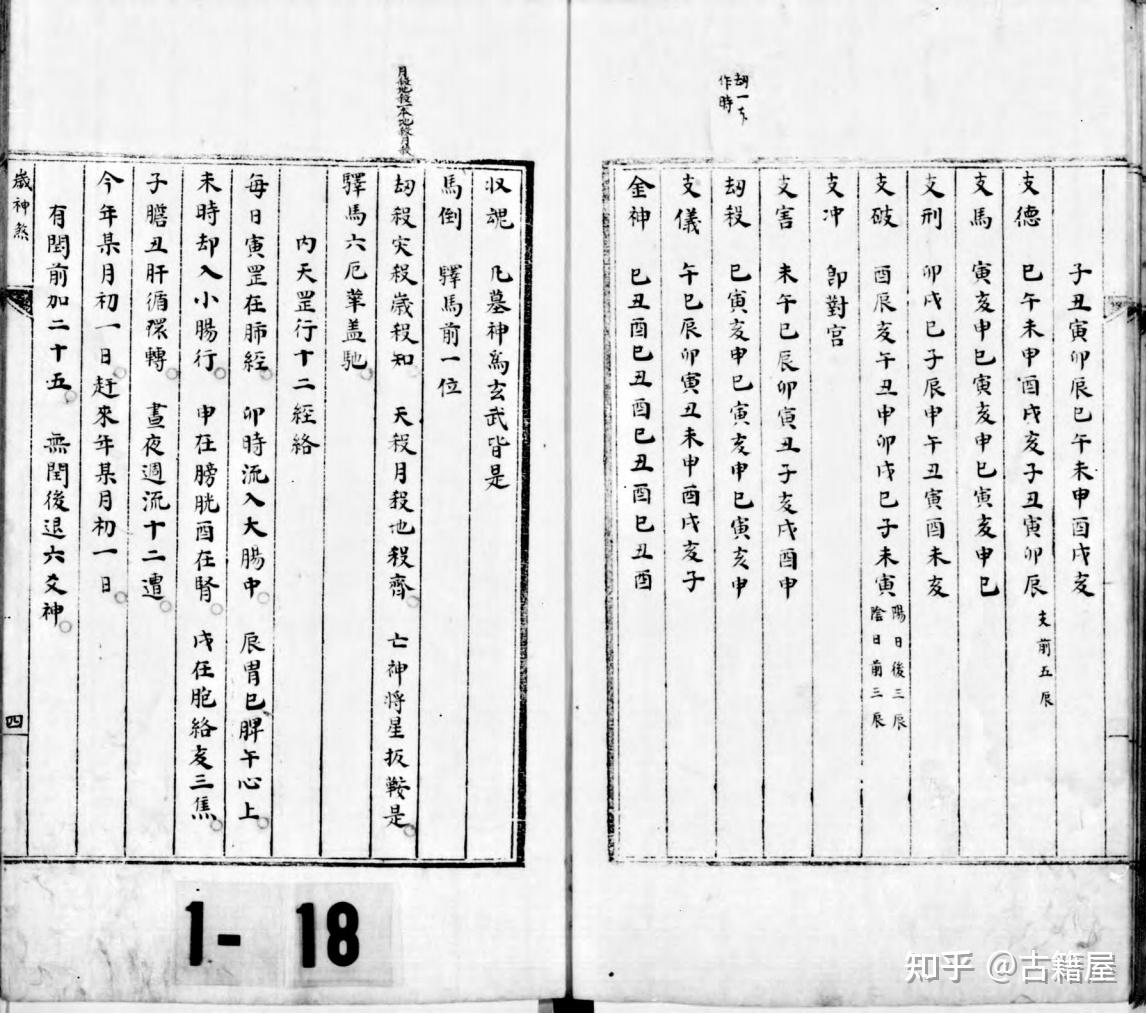 胡一
作時
子丑寅卯辰巳午未申酉戌亥
支德 巳午未申酉戌亥子丑寅卯辰 支前五辰
支馬 寅亥申巳寅亥申巳寅亥申巳
支刑 卯戌巳子辰申午丑寅酉未亥
支破 酉辰亥午丑申卯戌巳子未寅 陽日後三辰
陰日前三辰
支冲 即對宮
支害 未午巳辰卯寅丑子亥戌酉申
刼殺 巳寅亥申巳寅亥申巳寅亥申
支儀 午巳辰卯寅丑未申酉戌亥子
金神 巳丑酉巳丑酉巳丑酉巳丑酉
月殺地殺一本地殺月殺
収魂 凡墓神爲玄武皆是
馬倒 驛馬前一位
刼殺灾殺歲殺知。 天殺月殺地殺齊。 亡神将星扳鞍是。
驛馬六厄華盖馳。
内天罡行十二經絡
每日寅罡在肺經。 卯時流入大腸中。 辰胃巳脾午心上。
未時却入小腸行。 申在膀胱酉在腎。 戌在胞絡亥三焦。
子膽丑肝循環轉。 晝夜週流十二遭。
今年某月初一日。赶來年某月初一日。
有閏前加二十五。 無閏後退六爻神。
歲神煞
四
1-18
知乎 @古籍屋